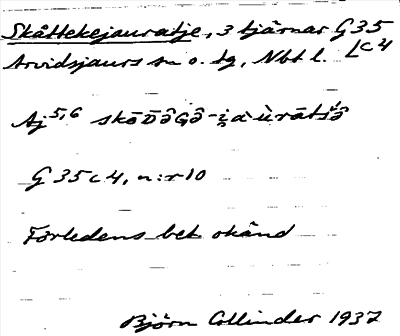 Skåttekejauratje, 3 tjärnar G 35
Arvidsjaurs sn o. tg, Nbt l. c 4
Aj 5,6
G 35 c 4, n:r 10
Förledens bet okänd
Björn Collinder 1937